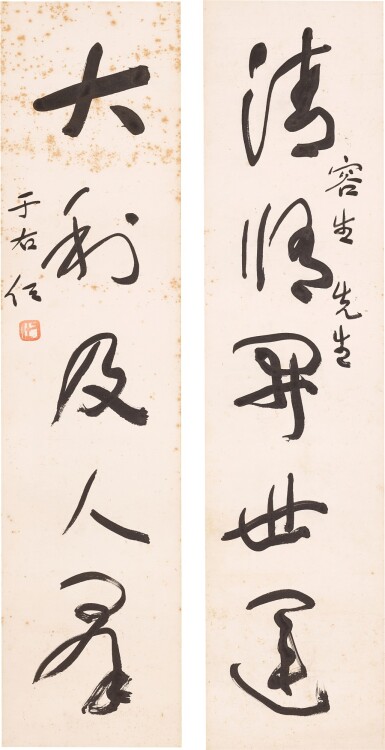 清開世運
容生先生
大利及人羣
于右任